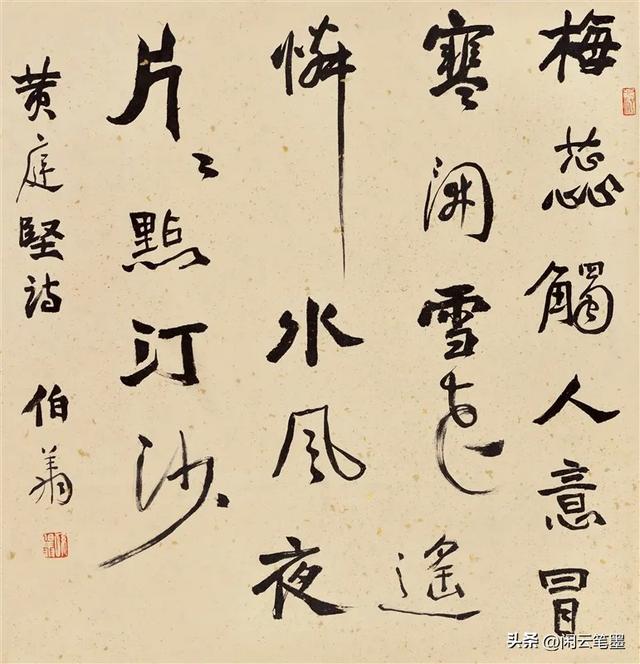 梅蕊觸人意冒
寒開雪花遙
憐水風夜
片〻點汀沙
黄庭堅詩 伯翔
头条 @闲云笔墨